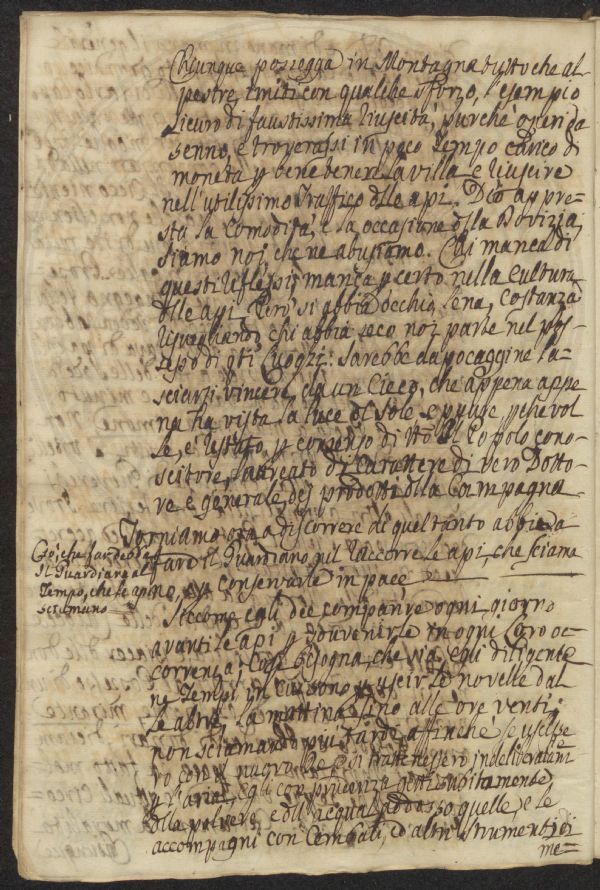 Chiunque possegga in Montagna tutto che al-
pestre, imiti con qualche sforzo, l'esempio
sicuro di faustissima riuscita, purchè operi da
senno, e troverassi in poco tempo carico di
moneta p bene tener la villa e riuscire
nell'utilissimo traffico dlle api. Dio appre-
sta la comodità, e la occasione dlla Dovizia,
siamo noi che ne abusiamo. Chi manca di
questi riflessi, manca p certo nella Cultura
dlle api. Però si abbia occhio, lena, costanza
risvegliando chi abbia seco noi parte nel pos-
di qti Luoghi. Sarebbe dapocaggine la-
sciarsi vincere da un Cieco, che appena appe
na ha vista la luce dl sole, e pure
le, è restato p consenso di tto il Popolo cono-
scitore, laureato di Carattere di vero Dotto-
re e generale dei prodotti dlla Campagna.
Torniamo ora a discorrere di quel tanto abbia da
fare il Guardiano pil raccorre le api, che sciama
no, e p conservarle in pace
Ciò, che far debba
il Guardiano al
tempo, che le api
sciamano
Siccome egli dee comparire ogni giorno
avanti le api p sovvenirle in ogni loro oc-
correnza; così bisogna, che sia egli diligente
ne' tempi in cui sono p uscir le novelle dal
le altre. La mattina sino alle ore venti;
non sciamando più tardi affinchè se uscisse
ro con nuovo Re e si trattenessero
p l'aria, egli con prudenza getti subitamente
dlla polvere, e dll'acqua addosso quelle, e le
accompagni con Cembali, ed altri strumenti di
me=